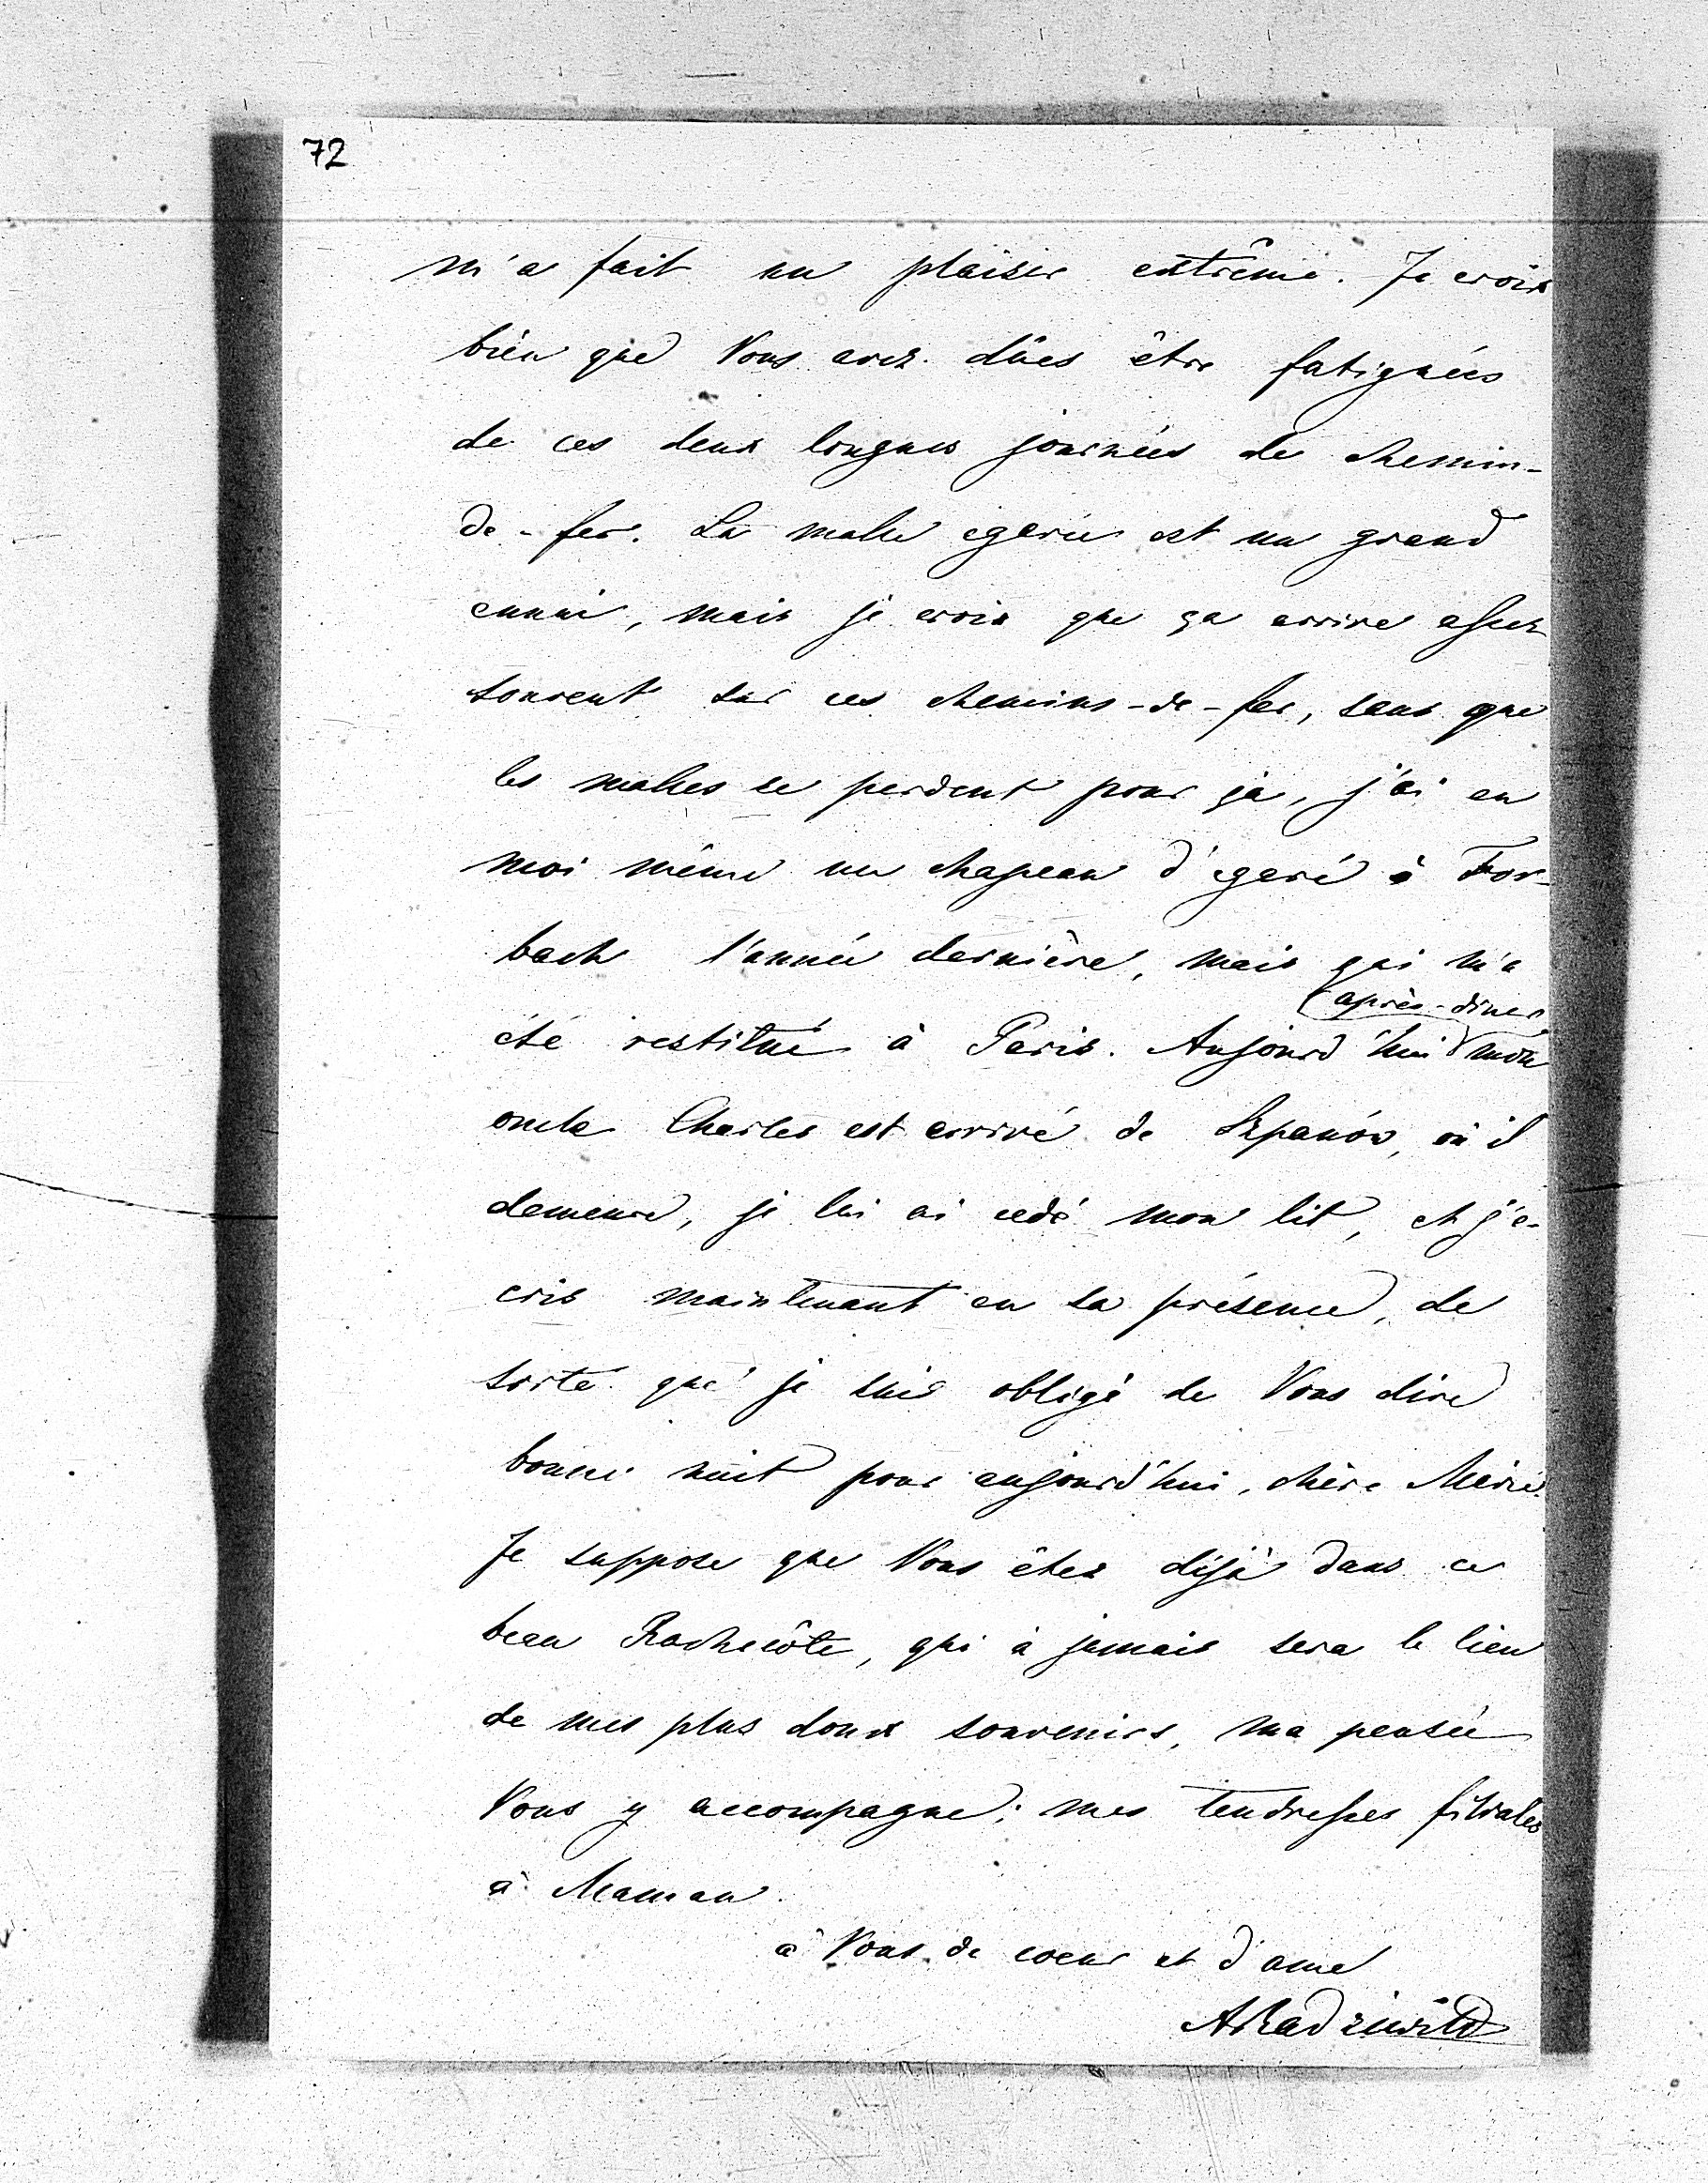 72
m'a fait un plaisir extrême. Je crois
bien que Vous avez dûes être fatiguées
de ces deux longues journées de chemin-
de-fer. La malle egarée est un grand
ennui, mais je crois que ça arrive assez
souvent sur ces chemins-de-fer, sans que
les malles se perdent pour ça, j'ai eu
moi même un chapeau d'egaré à For-
bach l'année dernière, mais qui m'a
après-diner
été restitué à Paris. Aujourd'hui mon
oncle Charles est arrivé de Szpanów, où il
demeure, je lui ai cédé mon lit, et j'e-
cris maintenant en sa présence, de
sorte que je suis obligé de Vous dire
bonne nuit pour aujourd'hui, chère Mère.
Je suppose que Vous êtes déjà dans ce
beau Rochecôte, qui à jamais sera le lieu
de mes plus doux souvenirs, ma pensée
Vous y accompagne; mes tendresses filiales
à Maman.
à Vous de coeur et d'ame
ARadziwill